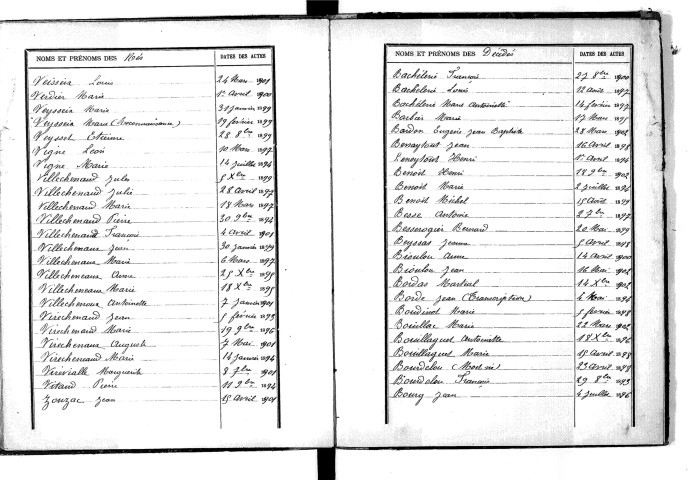 NOMS ET PRÉNOMS DES Nés DATES DES ACTES
Veisseix Louis 24 Mars 1901
Verdier Marie 1er Avril 1900
Veysseix Marie 31 janvier 1899
Veysseix Marie (Reconnaissance) 19 février 1899
Veysset Etienne 28 8bre 1899
Vigne Léon 10 Mars 1897
Vigne Marie 14 juillet 1894
Villechenaud Jules 5 Xbre 1899
Villechenaud Julie 28 avril 1897
Villechenaud Marie 18 Mars 1897
Villechenaud Pierre 30 9bre 1894
Villechenaud François 4 avril 1901
Villechenaux Jean 30 janvier 1899
Villechenaux Marie 6 Mars 1897
Villecheneaux Anna 25 Xbre 1895
Villecheneaux Marie 18 Xbre 1895
Villechenoux Antoinette 7 janvier 1901
Virechenaud Jean 5 février 1899
Virechenaud Marie 19 9bre 1896
Virechenaux Auguste 7 Mai 1901
Virecheneaud Marie 14 janvier 1894
Virevialle Marguerite 8 7bre 1901
Vitaud Pierre 11 9bre 1894
Zouzac Jean 15 avril 1901
NOMS ET PRÉNOMS DES Décédés DATES DES ACTES
Bachélerie François 27 8bre 1900
Bachélerie Louis 12 août 1897
Bachélerie Marie Antoinette 14 février 1897
Barbier Marie 17 Mars 1895
Bardon Eugénie Jean Baptiste 28 Mars 1902
Beneytout Jean 16 Avril 1898
Beneytout Henri 1er Avril 1896
Benoit Henri 18 9bre 1902
Benoit Marie 2 juillet 1896
Benoit Michel 15 Août 1899
Besse Antoine 2 7bre 1897
Besserogier Bernard 20 Mai 1899
Beyssas Jeanne 5 avril 1898
Bioulou Anne 14 avril 1900
Bioulou Jean 16 Mai 1902
Bordas Martial 14 Xbre 1902
Borde Jean (Transcription) 6 Mai 1896
Boudinot Marie 5 février 1898
Bouillac Marie 22 Mars 1902
Bouillaguet Antoinette 18 Xbre 1896
Bouillaguet Marie 15 Avril 1898
Bourdelou (Mort né) 23 avril 1898
Bourdelou François 29 8bre 1899
Bourg Jean 4 juillet 1896